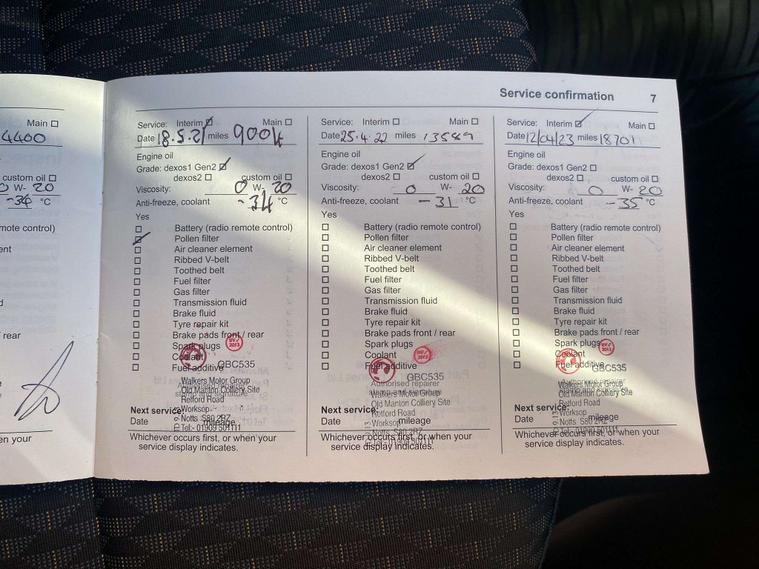 Service confirmation 7
Main ☐
4400
W- 20
-34 °C
mote control)
ent
d
/ rear
en your
Service: Interim ☑ Main ☐
Date 18.5.21 miles 9004
Engine oil
Grade: dexos1 Gen2 ☑
dexos2 ☐ custom oil ☐
Viscosity: 0 W- 20
Anti-freeze, coolant -34 °C
Yes
☐ Battery (radio remote control)
☑ Pollen filter
☐ Air cleaner element
☐ Ribbed V-belt
☐ Toothed belt
☐ Fuel filter
☐ Gas filter
☐ Transmission fluid
☐ Brake fluid
☐ Tyre repair kit
☐ Brake pads front / rear
☐ Spark plugs
☐ Coolant
☐ Fuel additive
GBC535
Walkers Motor Group
Old Manton Colliery Site
Retford Road
Worksop
Notts S80 2RZ
Tel:- 01909 501111
Next service:
Date mileage
Whichever occurs first, or when your
service display indicates.
Service: Interim ☐ Main ☐
Date 25.4.22 miles 13589
Engine oil
Grade: dexos1 Gen2 ☑
dexos2 ☐ custom oil ☐
Viscosity: 0 W- 20
Anti-freeze, coolant -31 °C
Yes
☐ Battery (radio remote control)
☐ Pollen filter
☐ Air cleaner element
☐ Ribbed V-belt
☐ Toothed belt
☐ Fuel filter
☐ Gas filter
☐ Transmission fluid
☐ Brake fluid
☐ Tyre repair kit
☐ Brake pads front / rear
☐ Spark plugs
☐ Coolant
☐ Fuel additive
GBC535
Authorised repairer
Walkers Motor Group
Old Manton Colliery Site
Retford Road
Worksop
Notts S80 2RZ
Next service:
Date mileage
Whichever occurs first, or when your
service display indicates.
Service: Interim ☑ Main ☐
Date 12/04/23 miles 18701
Engine oil
Grade: dexos1 Gen2 ☐
dexos2 ☐ custom oil ☐
Viscosity: 0 W- 20
Anti-freeze, coolant -35 °C
Yes
☐ Battery (radio remote control)
☐ Pollen filter
☐ Air cleaner element
☐ Ribbed V-belt
☐ Toothed belt
☐ Fuel filter
☐ Gas filter
☐ Transmission fluid
☐ Brake fluid
☐ Tyre repair kit
☐ Brake pads front / rear
☐ Spark plugs
☐ Coolant
☐ Fuel additive
GBC535
Walkers Motor Group
Old Manton Colliery Site
Retford Road
Worksop
Notts S80 2RZ
Next service:
Date mileage
Whichever occurs first, or when your
service display indicates.